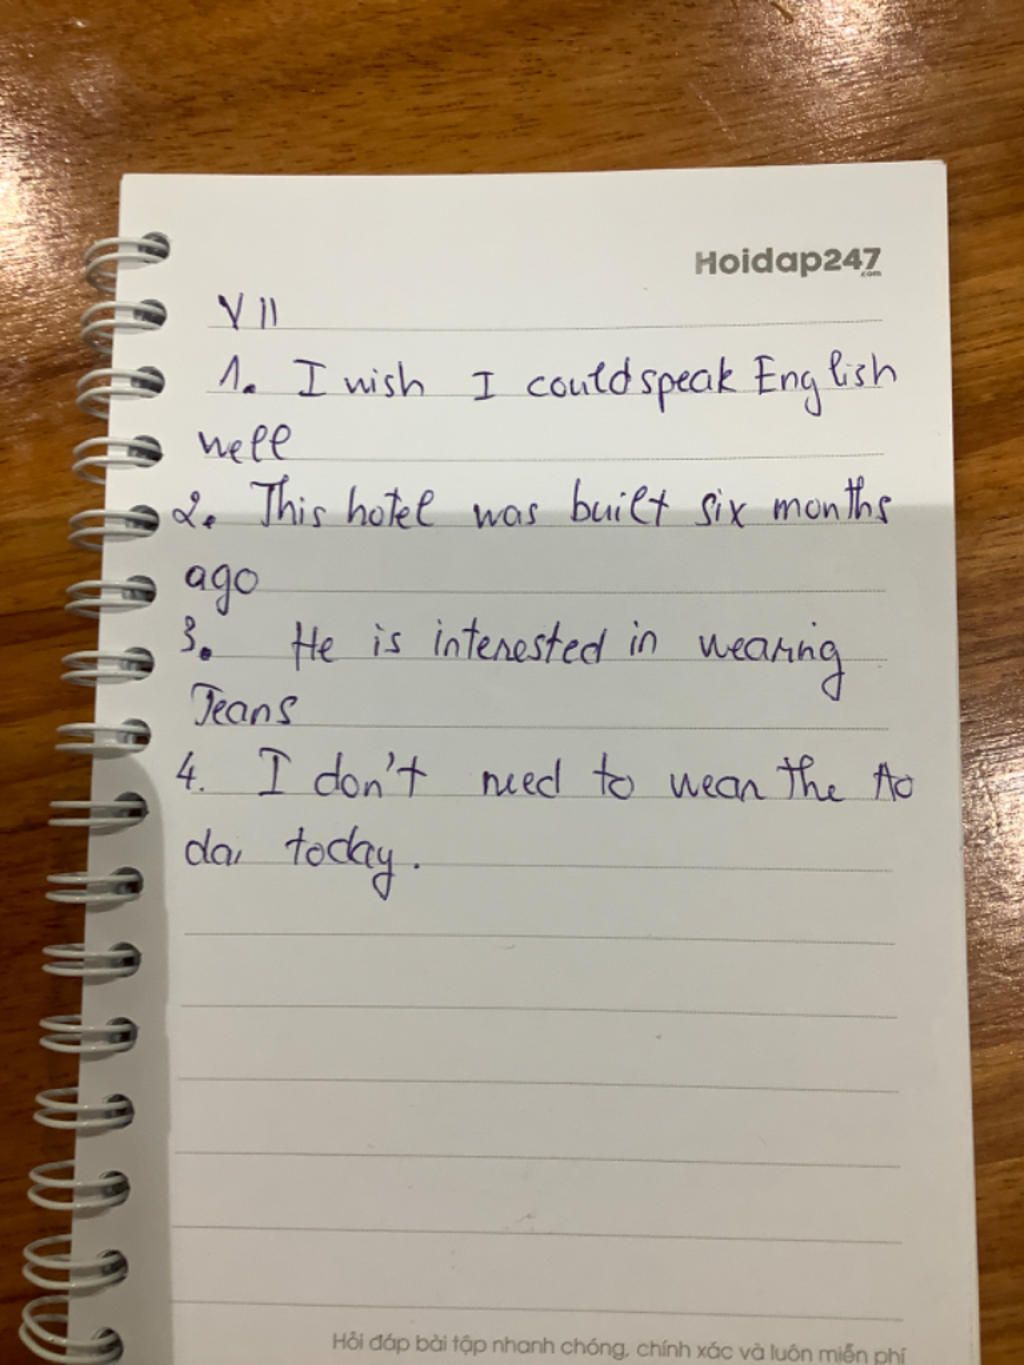 Hoidap247
.com
VII
1. I wish I could speak English
well
2. This hotel was built six months
ago
3. He is interested in wearing
Jeans
4. I don't need to wear the Ao
dai today.
Hỏi đáp bài tập nhanh chóng, chính xác và luôn miễn phí